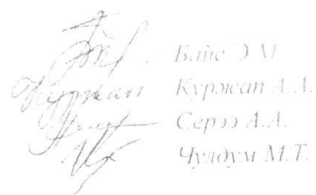 Байс Э.М.
Куржап А.А.
Серээ А.А.
Чулдум М.Т.